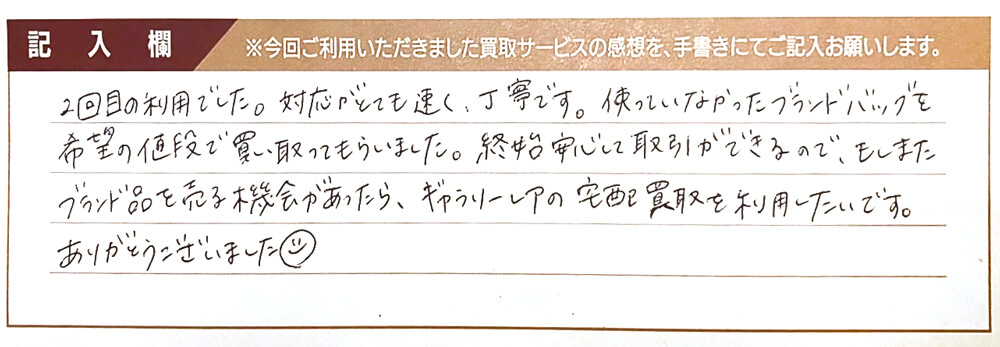 記入欄
※今回ご利用いただきました買取サービスの感想を、手書きにてご記入お願いします。
2回目の利用でした。対応がとても速く、丁寧です。使っていなかったブランドバッグを
希望の値段で買い取ってもらいました。終始安心して取引ができるので、もしまた
ブランド品を売る機会があったら、ギャラリーレアの宅配買取を利用したいです。
ありがとうございました